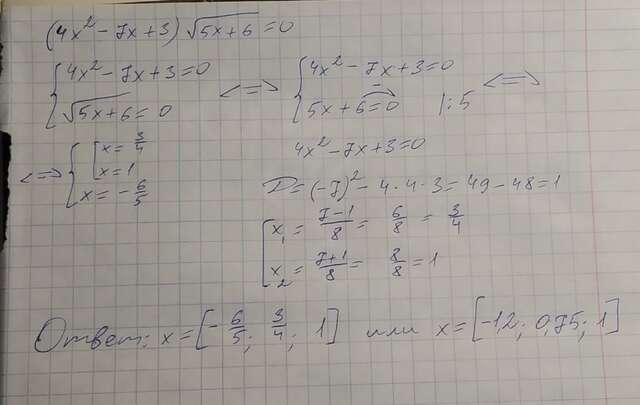 (4x² - 7x + 3) √(5x + 6) = 0
{ 4x² - 7x + 3 = 0
√(5x + 6) = 0 <=> { 4x² - 7x + 3 = 0
5x + 6 = 0 |:5 <=>
<=> { [ x = 3/4
x = 1
x = - 6/5
4x² - 7x + 3 = 0
D = (-7)² - 4 · 4 · 3 = 49 - 48 = 1
[ x₁ = (7-1)/8 = 6/8 = 3/4
x₂ = (7+1)/8 = 8/8 = 1
Ответ: x = [- 6/5; 3/4; 1] или x = [-1,2; 0,75; 1]